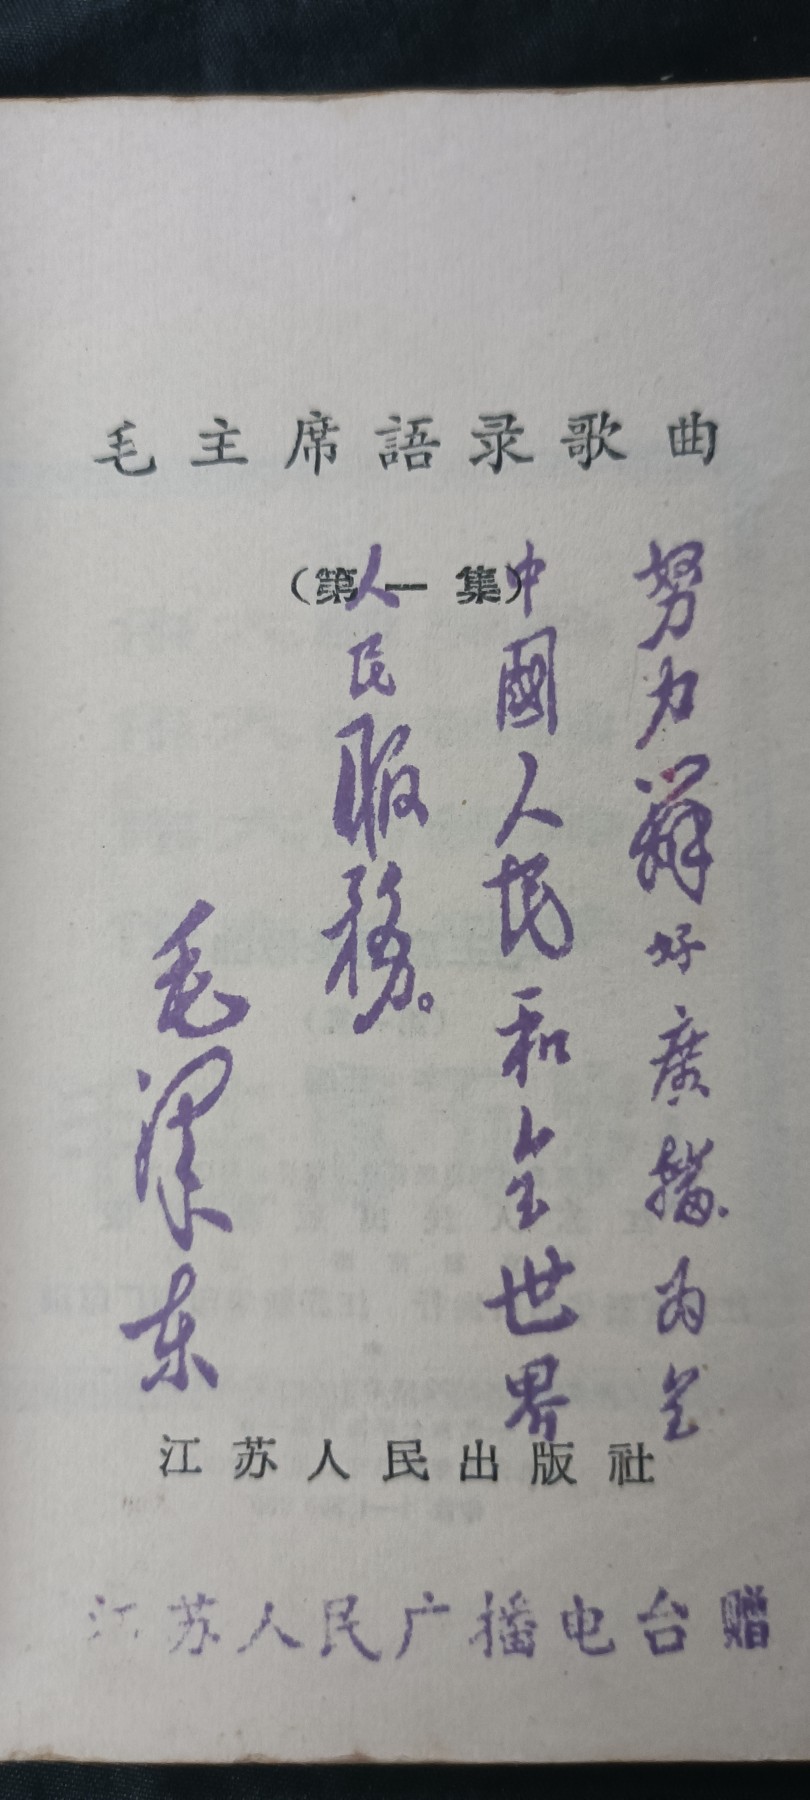 毛主席語录歌曲
（第一集）
努力辦好廣播、为全
中國人民和全世界
人民服務。
毛澤东
江苏人民出版社
江苏人民广播电台赠